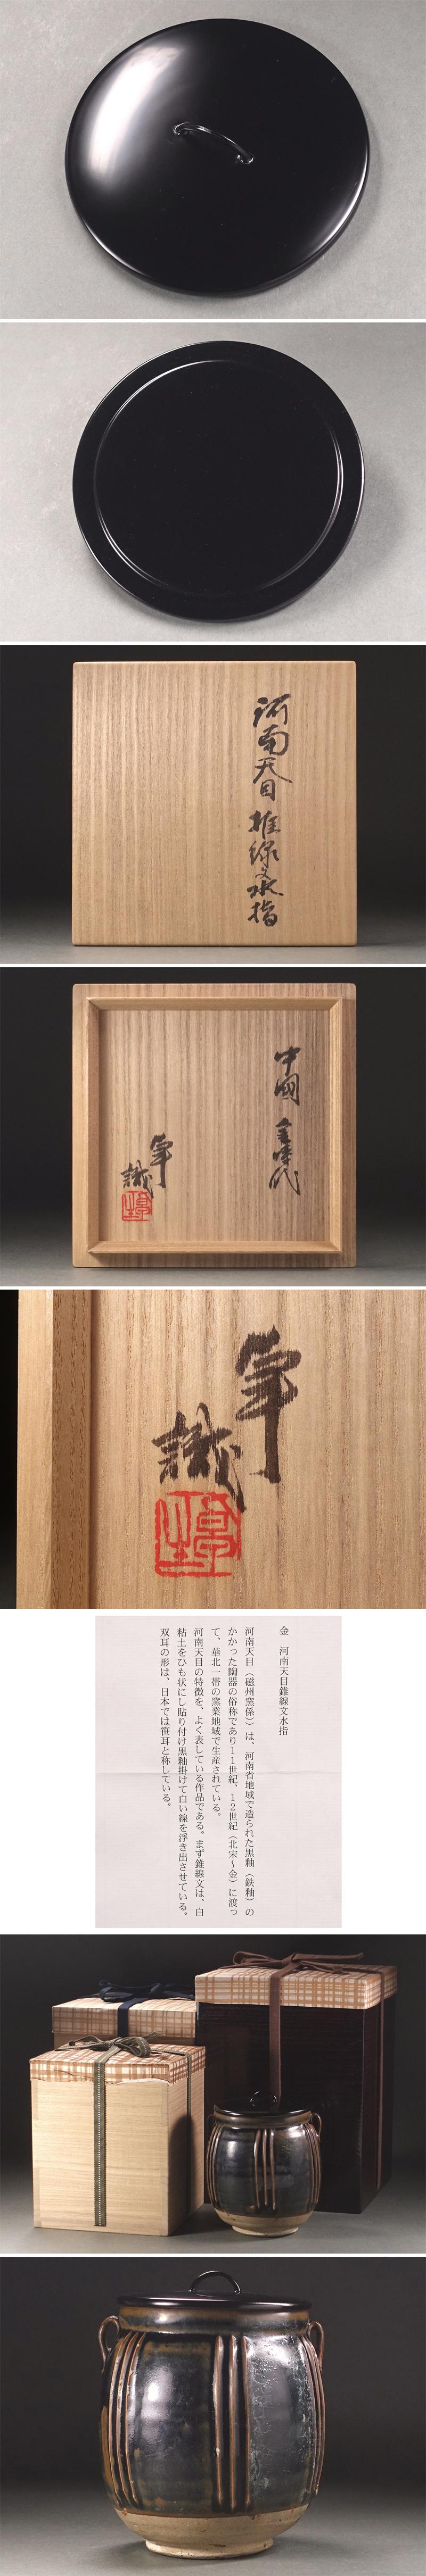 河南天目堆線文水指
中國 金時代
峯
識
金 河南天目錐線文水指
河南天目（磁州窯係）は、河南省地域で造られた黒釉（鉄釉）の
かかった陶器の俗称であり11世紀、12世紀（北宋～金）に渡っ
て、華北一帯の窯業地域で生産されている。
河南天目の特徴を、よく表している作品である。まず錐線文は、白
粘土をひも状にし貼り付け黒釉掛けて白い線を浮き出させている。
双耳の形は、日本では笹耳と称している。